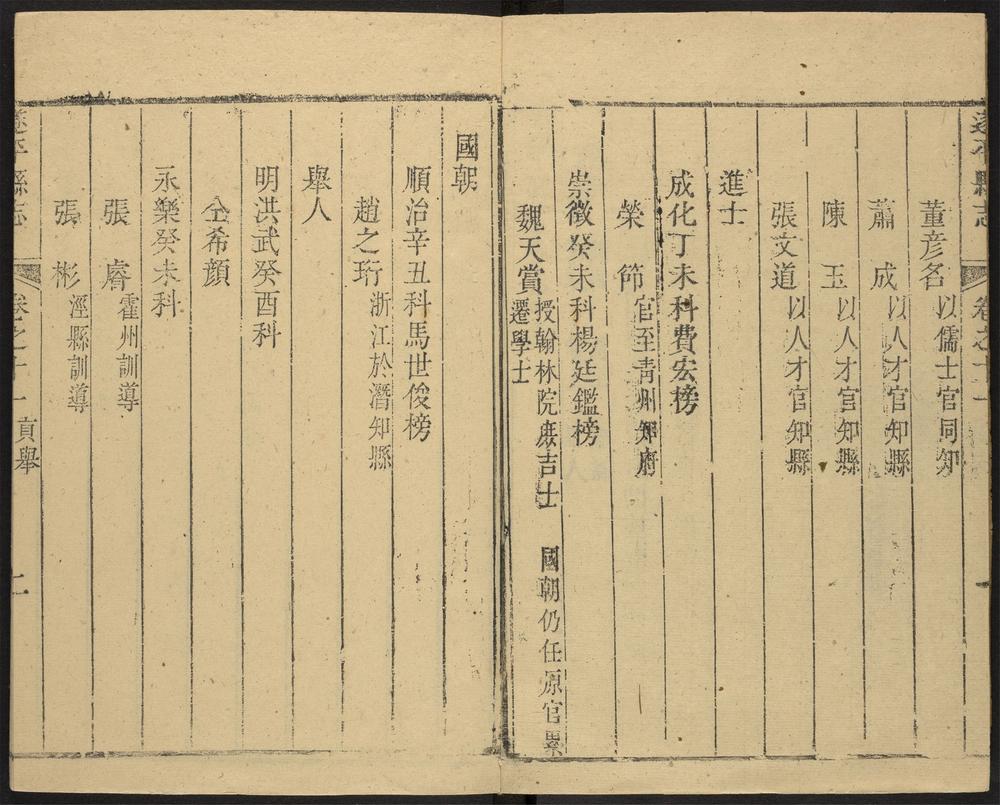 遂平縣志 卷之十一 一
董彥名 以儒士官同知
蕭成 以人才官知縣
陳玉 以人才官知縣
張文道 以人才官知縣
進士
成化丁未科費宏榜
榮節 官至青州知府
崇徵癸未科楊廷鑑榜
魏天賞 授翰林院庶吉士 國朝仍任原官累
遷學士
國朝
順治辛丑科馬世俊榜
趙之珩 浙江於潛知縣
舉人
明洪武癸酉科
仝希顏
永樂癸未科
張睿 霍州訓導
張彬 涇縣訓導
遂平縣志 卷之十一 貢舉 二